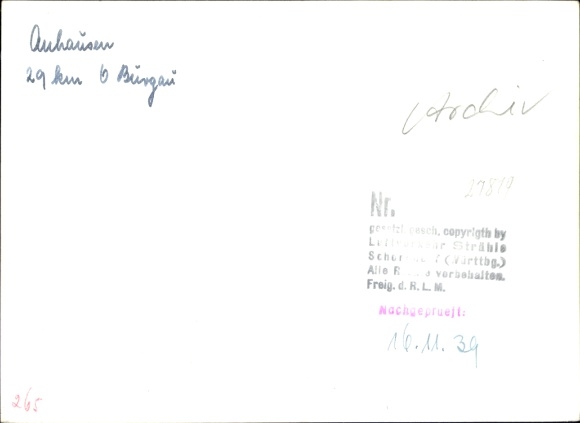 Anhausen
29 km O Burgau
Archiv
27812
Nr.
gesetzl. gesch. copyrigth by
Strähle
(Württbg.)
Alle vorbehalten.
Freig. d. R. L. M.
Nachgeprueft:
16.11.39
265